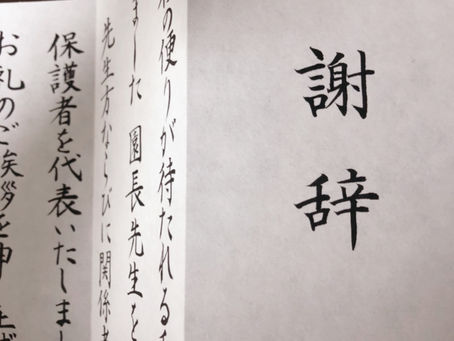 謝辞
の便りが待たれる
ました 園長先生を
先生方ならびに関係者
保護者を代表いたしまし
お礼のご挨拶を申し上げ